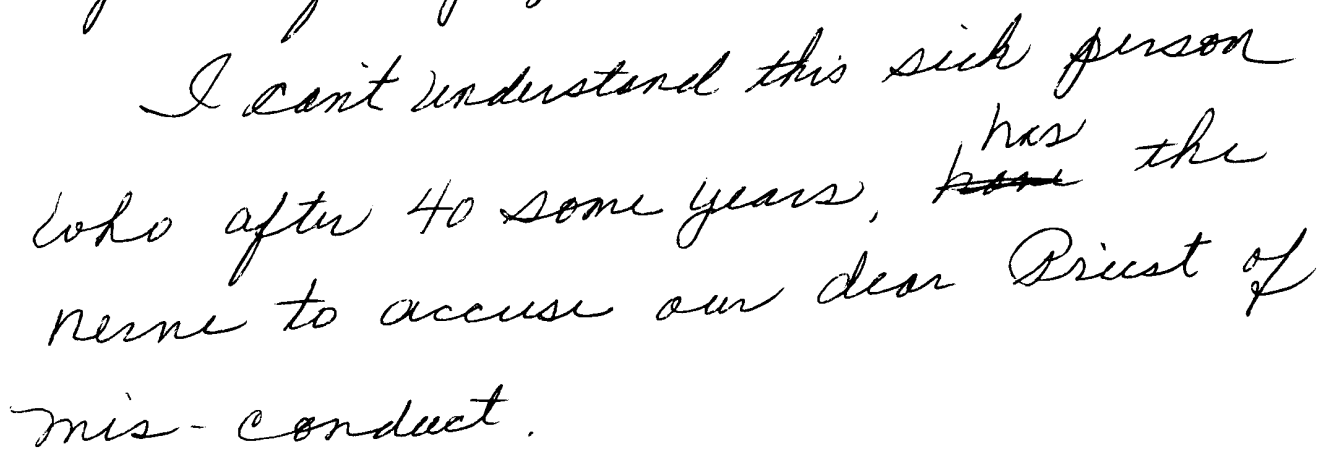 I can't understand this sick person
who after 40 some years, has the
nerve to accuse our dear Priest of
mis-conduct.